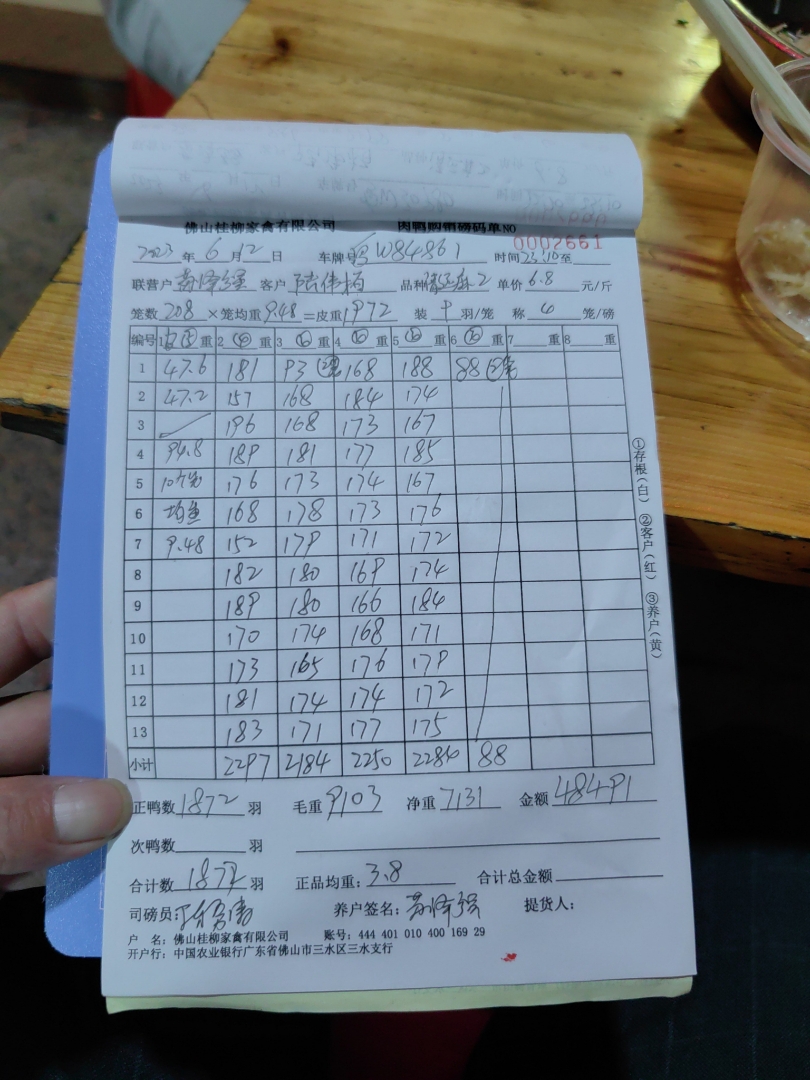 佛山桂柳家禽有限公司 肉鸭购销磅码单NO 0002661
2023 年 6 月 12 日 车牌号 W84861 时间 23:10 至
联营户 客户 陆伟 品种 2 单价 6.8 元/斤
笼数 208 ×笼均重 9.48 =皮重 1972 装 9 羽/笼 称 笼/磅
编号 1 皮 重 2 重 3 重 4 重 5 重 6 重 7 重 8 重
1 47.6 181 93 168 188 88
2 47.2 157 168 184 174
3 196 168 173 167
4 94.8 189 181 177 185
5 176 173 174 167
6 均重 168 178 173 176
7 9.48 152 179 171 172
8 182 180 169 174
9 189 180 166 184
10 170 174 168 171
11 173 165 176 179
12 181 174 174 172
13 183 171 177 175
小计 2297 2184 2250 2284 88
①存根(白) ②客户(红) ③养户(黄)
正鸭数 1872 羽 毛重 9103 净重 7131 金额 48491
次鸭数 羽
合计数 1872 羽 正品均重: 3.8 合计总金额
司磅员: 养户签名: 提货人:
户 名: 佛山桂柳家禽有限公司 账号: 444 401 010 400 169 29
开户行: 中国农业银行广东省佛山市三水区三水支行